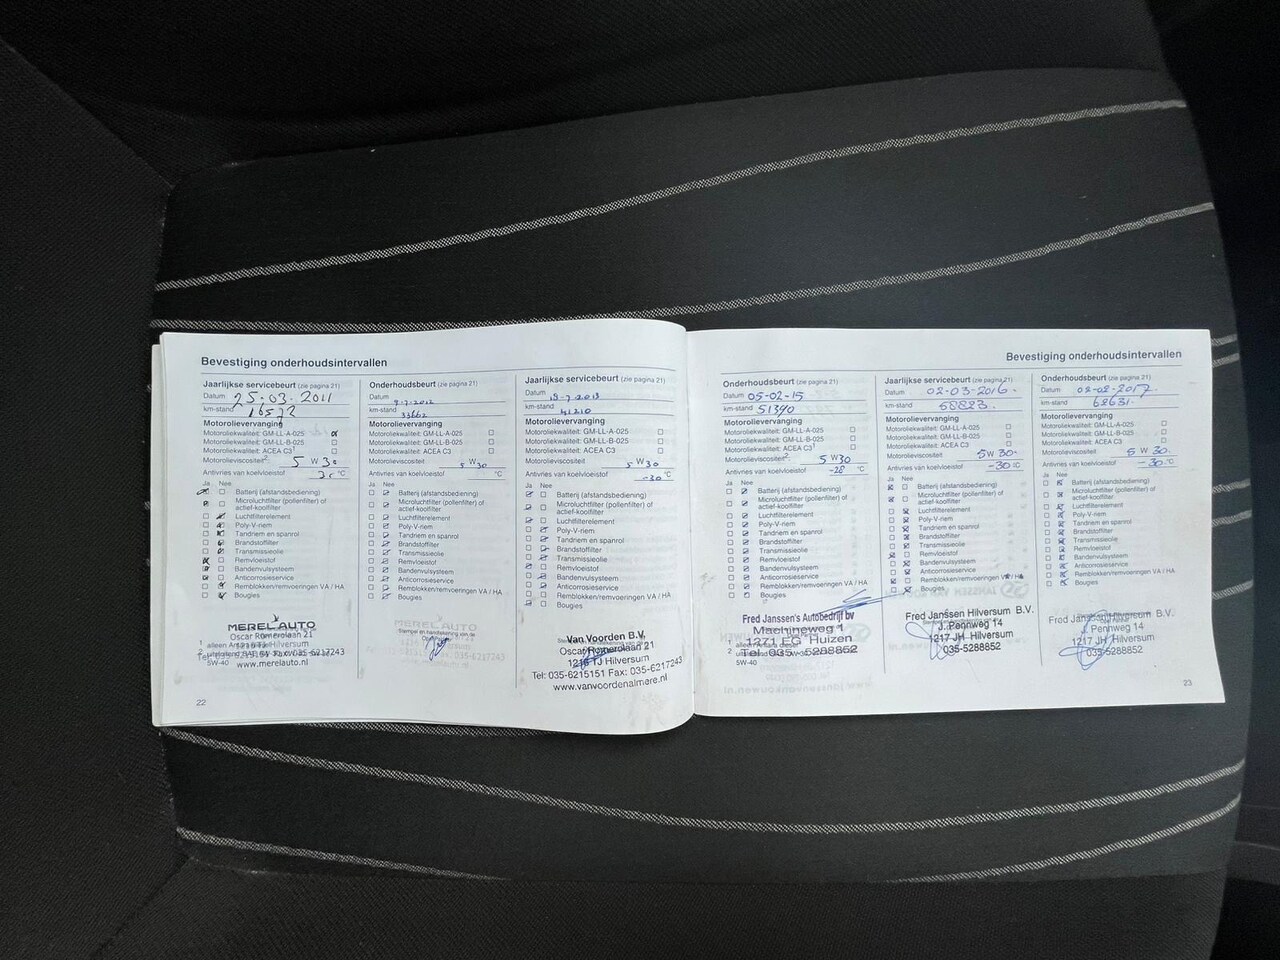 Bevestiging onderhoudsintervallen
Jaarlijkse servicebeurt (zie pagina 21)
Datum 25-03-2011
km-stand 16572
Motorolievervanging
Motoroliekwaliteit: GM-LL-A-025
Motoroliekwaliteit: GM-LL-B-025
Motoroliekwaliteit: ACEA C3
Motorolieviscositeit 5 W 30
Antivries van koelvloeistof °C
Ja Nee
Batterij (afstandsbediening)
Microluchtfilter (pollenfilter) of
actief-koolfilter
Luchtfilterelement
Poly-V-riem
Tandriem en spanrol
Brandstoffilter
Transmissieolie
Remvloeistof
Bandenvulsysteem
Anticorrosieservice
Remblokken/remvoeringen VA / HA
Bougies
MEREL AUTO
Oscar Romerolaan 21
Hilversum
035-6217243
www.merelauto.nl
5W-40
22
Onderhoudsbeurt (zie pagina 21)
Datum 9-7-2012
km-stand 33662
Motorolievervanging
Motoroliekwaliteit: GM-LL-A-025
Motoroliekwaliteit: GM-LL-B-025
Motoroliekwaliteit: ACEA C3
Motorolieviscositeit 5 W 30
Antivries van koelvloeistof °C
Ja Nee
Batterij (afstandsbediening)
Microluchtfilter (pollenfilter) of
actief-koolfilter
Luchtfilterelement
Poly-V-riem
Tandriem en spanrol
Brandstoffilter
Transmissieolie
Remvloeistof
Bandenvulsysteem
Anticorrosieservice
Remblokken/remvoeringen VA / HA
Bougies
Jaarlijkse servicebeurt (zie pagina 21)
Datum
km-stand 41210
Motorolievervanging
Motoroliekwaliteit: GM-LL-A-025
Motoroliekwaliteit: GM-LL-B-025
Motoroliekwaliteit: ACEA C3
Motorolieviscositeit 5 W 30
Antivries van koelvloeistof -30 °C
Ja Nee
Batterij (afstandsbediening)
Microluchtfilter (pollenfilter) of
actief-koolfilter
Luchtfilterelement
Poly-V-riem
Tandriem en spanrol
Brandstoffilter
Transmissieolie
Remvloeistof
Bandenvulsysteem
Anticorrosieservice
Remblokken/remvoeringen VA / HA
Bougies
Van Voorden B.V.
Oscar Romerolaan 21
1216 TJ Hilversum
Tel: 035-6215151 Fax: 035-6217243
www.vanvoordenalmere.nl
Bevestiging onderhoudsintervallen
Onderhoudsbeurt (zie pagina 21)
Datum 05-02-15
km-stand 51390
Motorolievervanging
Motoroliekwaliteit: GM-LL-A-025
Motoroliekwaliteit: GM-LL-B-025
Motoroliekwaliteit: ACEA C3
Motorolieviscositeit 5 W 30
Antivries van koelvloeistof -28 °C
Ja Nee
Batterij (afstandsbediening)
Microluchtfilter (pollenfilter) of
actief-koolfilter
Luchtfilterelement
Poly-V-riem
Tandriem en spanrol
Brandstoffilter
Transmissieolie
Remvloeistof
Bandenvulsysteem
Anticorrosieservice
Remblokken/remvoeringen VA / HA
Bougies
Fred Janssen's Autobedrijf bv
Machineweg 1
1271 EG Huizen
Tel. 035 - 5288852
5W-40
Jaarlijkse servicebeurt (zie pagina 21)
Datum 02-03-2016
km-stand 58823
Motorolievervanging
Motoroliekwaliteit: GM-LL-A-025
Motoroliekwaliteit: GM-LL-B-025
Motoroliekwaliteit: ACEA C3
Motorolieviscositeit 5W 30
Antivries van koelvloeistof -30 °C
Ja Nee
Batterij (afstandsbediening)
Microluchtfilter (pollenfilter) of
actief-koolfilter
Luchtfilterelement
Poly-V-riem
Tandriem en spanrol
Brandstoffilter
Transmissieolie
Remvloeistof
Bandenvulsysteem
Anticorrosieservice
Remblokken/remvoeringen VA / HA
Bougies
Fred Janssen Hilversum B.V.
J. Pennweg 14
1217 JH Hilversum
035-5288852
Onderhoudsbeurt (zie pagina 21)
Datum 02-02-2017
km-stand 62631
Motorolievervanging
Motoroliekwaliteit: GM-LL-A-025
Motoroliekwaliteit: GM-LL-B-025
Motoroliekwaliteit: ACEA C3
Motorolieviscositeit 5 W 30
Antivries van koelvloeistof -30 °C
Ja Nee
Batterij (afstandsbediening)
Microluchtfilter (pollenfilter) of
actief-koolfilter
Luchtfilterelement
Poly-V-riem
Tandriem en spanrol
Brandstoffilter
Transmissieolie
Remvloeistof
Bandenvulsysteem
Anticorrosieservice
Remblokken/remvoeringen VA / HA
Bougies
Fred Janssen Hilversum B.V.
J. Pennweg 14
1217 JH Hilversum
035-5288852
23